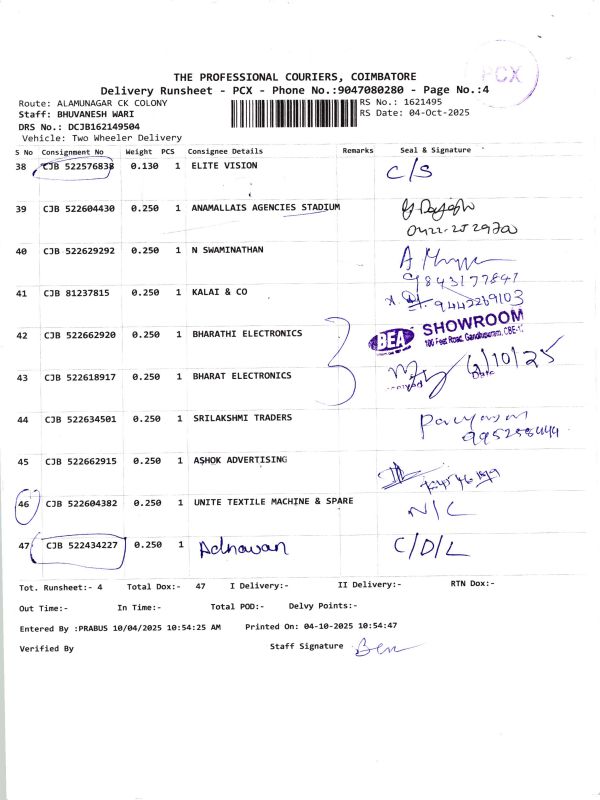 PCX
THE PROFESSIONAL COURIERS, COIMBATORE
Delivery Runsheet - PCX - Phone No.:9047080280 - Page No.:4
Route: ALAMUNAGAR CK COLONY
RS No.: 1621495
Staff: BHUVANESH WARI
RS Date: 04-Oct-2025
DRS No.: DCJB162149504
Vehicle: Two Wheeler Delivery
S No Consignment No Weight PCS Consignee Details Remarks Seal & Signature
38 CJB 522576838 0.130 1 ELITE VISION C/S
39 CJB 522604430 0.250 1 ANAMALLAIS AGENCIES STADIUM
0422-2529720
40 CJB 522629292 0.250 1 N SWAMINATHAN
9843177847
41 CJB 81237815 0.250 1 KALAI & CO 9442269103
42 CJB 522662920 0.250 1 BHARATHI ELECTRONICS BEA SHOWROOM
100 Feet Road, Gandhipuram, CBE-12
43 CJB 522618917 0.250 1 BHARAT ELECTRONICS Date 6/10/25
44 CJB 522634501 0.250 1 SRILAKSHMI TRADERS
45 CJB 522662915 0.250 1 ASHOK ADVERTISING
46 CJB 522604382 0.250 1 UNITE TEXTILE MACHINE & SPARE N/C
47 CJB 522434227 0.250 1 Adhavan C/D/L
Tot. Runsheet:- 4 Total Dox:- 47 I Delivery:- II Delivery:- RTN Dox:-
Out Time:- In Time:- Total POD:- Delvy Points:-
Entered By :PRABUS 10/04/2025 10:54:25 AM Printed On: 04-10-2025 10:54:47
Verified By Staff Signature